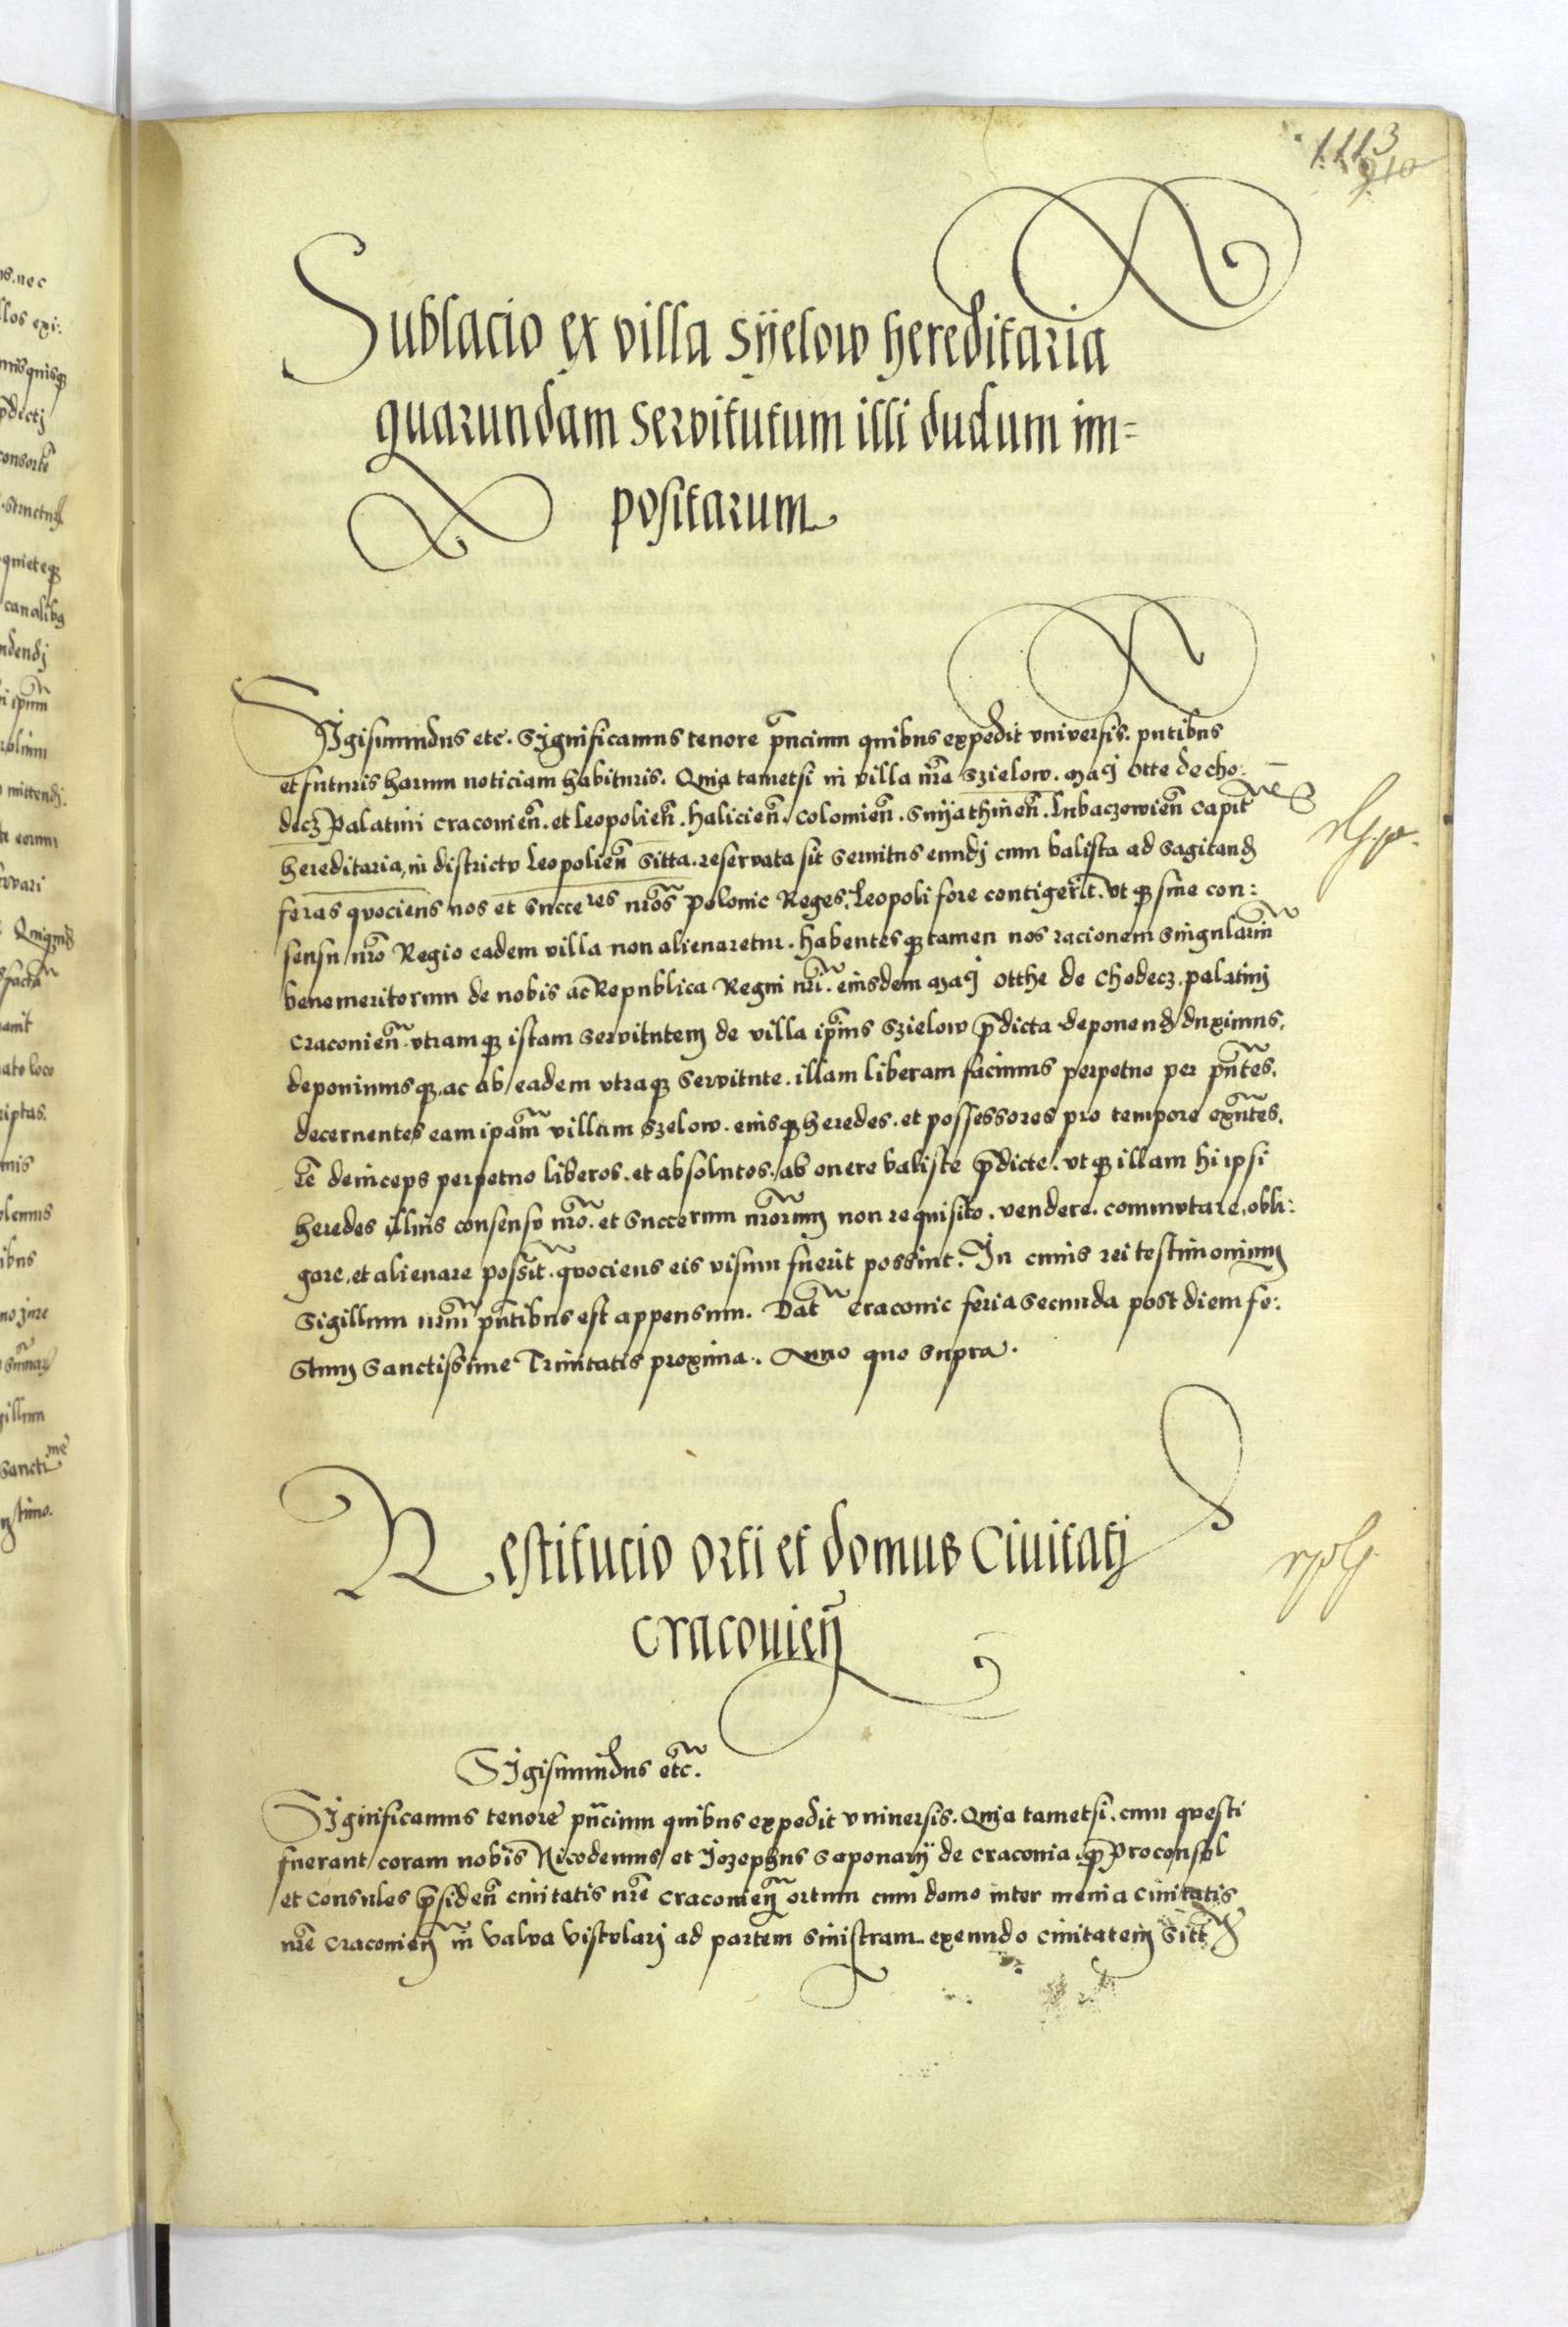 1113
910
Sublacio ex villa Sÿelow hereditaria
quarundam servitutum illi dudum im=
positarum
Sigismundus etc. Significamus tenore pñcium quibus expedit universis. pntibus
et futuris harum noticiam habituris. Quia tametsi in villa nrã Szielow. Maci Otte de Cho:
decz Palatini Cracovien̄. et Leopolien̄. Halicien̄. Colomien̄. Snyathinen̄. Lubaczowien̄ Capit
hereditaria, in districtu Leopolien̄ sitta. reservata sit servitus eundi cum balista ad sagitand
feras quociens nos et succeres nrōs Polonie Reges. Leopoli fore contigerit. ut q sine con:
sensu nrō Regio eadem villa non alienaretur. habentes q tamen nos racionem singularim
benemeritorum de nobis ac Republica Regni nri. eiusdem Maci Otthe de Chodecz. palatini
Cracovien̄. utramq istam servitutem de villa ipius Szielow p̄dicta deponend duximus.
deponimusq. ac ab eadem utraq servitute. illam liberam facimus perpetuo per pn̄tes.
decernentes eam ipam villam Szelow. eiusq heredes. et possessores pro tempore exn̄tes.
deinceps perpetuo liberos. et absolutos. ab onere baliste p̄dicte. ut q illam hi ipsi
heredes illius consensu nrō. et succerum nrōrum non requisito. vendere. commutare, obli:
gare, et alienare possit. quociens eis visum fuerit possint. In cuius rei testimonium
Sigillum nrm̄ pn̄tibus est appensum. Dat Cracovie feria secunda post diem fe:
stum Sanctissime Trinitatis proxima. Anno quo supra.
Restitucio orti et domus Civitati
Cracovien̄
Sigismundus etc.
Significamus tenore pn̄cium quibus expedit universis. Quia tametsi. cum questi
fuerant coram nobis Nicodemus et Jozephus Saponarÿ de Cracovia. q Proconsul
et Consules p̄siden̄ civitatis nrē Cracovien̄ ortum cum domo inter menia civitatis
nrē Cracovien̄ in valva vistulari ad partem sinistram exeundo civitatem sitt